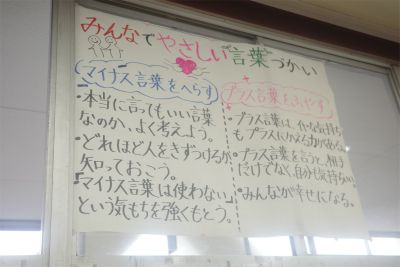 みんなでやさしい言葉づかい
マイナス言葉をへらす
・本当に言ってもいい言葉
なのか、よく考えよう。
・どれほど人をきずつけるか
知っておこう。
・「マイナス言葉は使わない」
という気もちを強くもとう。
プラス言葉をふやす
・プラス言葉は、どんな気持ちも
プラスにかえる力がある。
・プラス言葉を言うと、相手
だけでなく自分も気持ちいい。
・みんなが幸せになる。